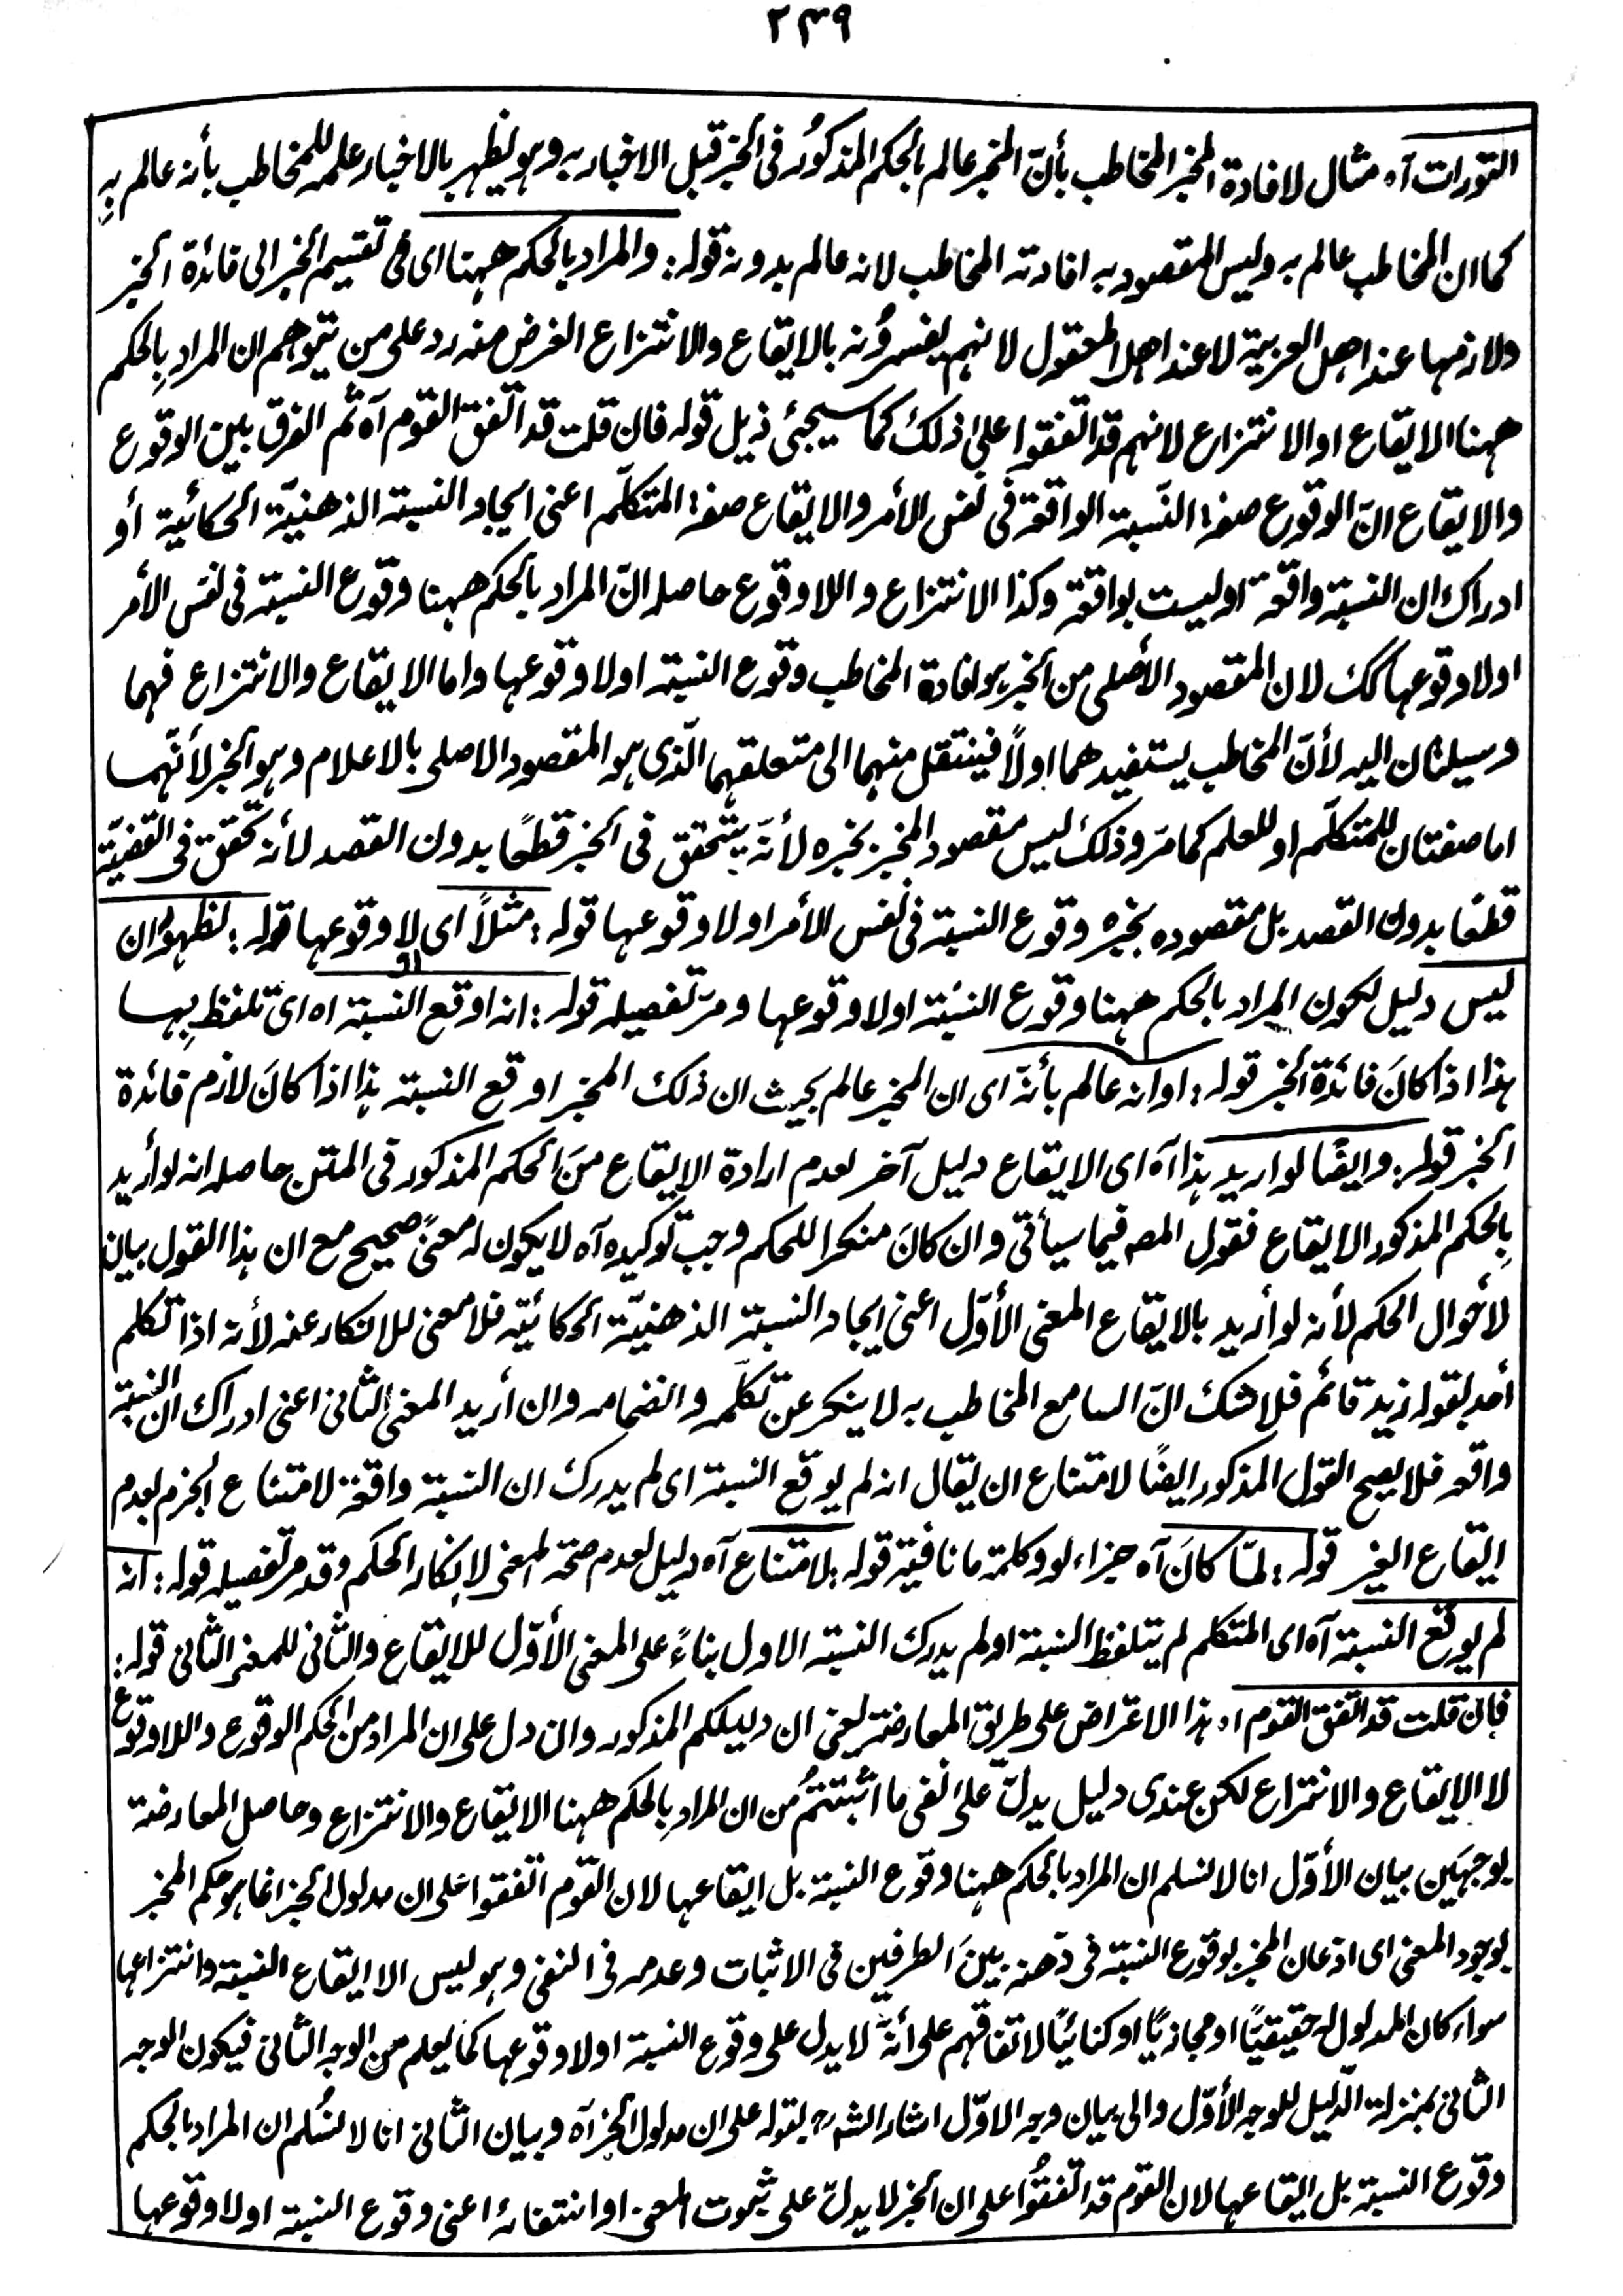 ٢٣٩
التورات آه مثال لافادة المخبر المخاطب بأنّ المخبر عالم بالحكم المذكور فى الخبر قبل الاخبار به وهو ليظهر بالاخبار علمه للمخاطب بأنه عالم بهِ
كما ان المخاطب عالم به وليس المقصود به افادته المخاطب لانه عالم بدونه قوله : والمراد بالحكم ههنا اى فى تقسيم الخبر الى فائدة الخبر
ولازمها عند اهل العربية لا عند اهل المعقول لانهم يفسرونه بالايقاع والانتزاع الغرض منه رد على من يتوهم ان المرادِ بالحكم
ههنا الايقاع او الانتزاع لانهم قد اتفقوا على ذلك كما سيجئ ذيل قوله فان قلت قد اتفق القوم آه ثم الفرق بين الوقوع
والايقاع انّ الوقوع صفة النّسبة الواقعة فى نفس الأمر والايقاع صفة المتكلّم اعنى ايجاد النسبة الذهنيّة الحكائيّة أو
ادراك ان النسبة واقعة او ليست بواقعة وكذا الانتزاع واللاوقوع حاصله انّ المراد بالحكم ههنا وقوع النسبة فى نفس الأمر
اولا وقوعها كك لان المقصود الأصلى من الخبر هو افادة المخاطب وقوع النسبة اولا وقوعها واما الايقاع والانتزاع فهما
وسيلتان اليه لأنّ المخاطب يستفيدهما اولاً فينتقل منهما الى متعلقهما الّذى هو المقصود الاصلى بالاعلام وهو الخبر لأنّهما
اما صفتان للمتكلّم او للعلم كما مرّ وذلك ليس مقصود المخبر بخبره لأنّه يتحقق فى الخبر قطعًا بدون القصد لأنه تحقق فى القضيّة
قطعًا بدون القصد بل مقصوده بخبره وقوع النسبة فى نفس الأمر اولا وقوعها قوله : مثلاً اى او لا وقوعها قوله : لظهور ان
ليس دليل لكون المراد بالحكم ههنا وقوع النسبة اولا وقوعها ومرّ تفصيله قوله : انه اوقع النسبة اه اى تلفظ بِها
هذا اذا كانَ فائدة الخبر قوله : اوانه عالم بأنّه اى ان المخبر عالم بحيث ان ذلك المخبر اوقع النسبة هذا اذا كانَ لازم فائدة
الخبر قوله : وايضًا لو اريد هذا آه اى الايقاع دليل آخر لعدم ارادة الايقاع منَ الحكم المذكور فى المتن حاصله انه لو أريد
بِالحكم المذكور الايقاع فقول المصـ فيما سيأتى وان كانَ منكرا للحكم وجب توكيده آه لا يكون له معنىً صحيح مع ان هذا القول بيان
لأحوال الحكم لأنه لو أريد بالايقاع المعنى الأوّل اعنى ايجاد النسبة الذهنيّة الحكائيّة فلا معنى للانكار عنه لأنه اذا تكلم
أحد بقوله زيد قائم فلا شك انّ السامع المخاطب به لا ينكر عن تكلّمه وانضمامه وان أريد المعنى الثانى اعنى ادراك ان النسبة
واقعه فلا يصح القول المذكور ايضًا لامتناع ان يقال انه لم يوقع النسبة اى لم يدرك ان النسبة واقعة لامتناع الجزم بعدم
ايقاع الغير قوله : لمّا كانَ آه جزاء لو وكلمة ما نافية قوله : لامتناع آه دليل لعدم صحة المعنى لانكار الحكم وقد مرّ تفصيله قوله : انه
لم يوقع النسبة آه اى المتكلم لم يتلفظ النسبة اولم يدرك النسبة الاول بناءً على المعنى الأوّل للايقاع والثانى للمعنى الثانى قوله :
فان قلت قد اتفق القوم اه هذا الاعتراض على طريق المعارضة يعنى ان دليلكم المذكور وان دل على ان المراد من الحكم الوقوع واللاوقوع
لا الايقاع والانتزاع لكن عندى دليل يدلّ على نفى ما اثبتتُم من ان المرادِ بالحكم ههنا الايقاع والانتزاع وحاصل المعارضة
بوجهَين بيان الأوّل انا لا نسلم ان المراد بالحكم ههنا وقوع النسبة بل ايقاعها لان القوم اتفقوا على ان مدلول الخبر انما هو حكم المخبر
بوجود المعنى اى اذعان المخبر بوقوع النسبة فى ذهنه بينَ الطرفين فى الاثبات وعدمه فى النفى وهو ليس الا ايقاع النسبة وانتزاعها
سواء كان المدلول له حقيقيًا او مجازيًا او كنائيًا لاتفاقهم على أنّه لا يدل على وقوع النسبة اولا وقوعها كما يعلم من الوجه الثانى فيكون الوجه
الثانى بمنزلة الدّليل للوجه الأوّل والى بيان وجه الاوّل اشار الشه رح بقوله على ان مدلول الخبر آه وبيان الثانى انا لا نسُلم ان المراد بالحكم
وقوع النسبة بل ايقاعها لان القوم قد اتفقُوا على ان الخبر لا يدلّ على ثبوت المعنى او انتفائه اعنى وقوع النسبة اولا وقوعها